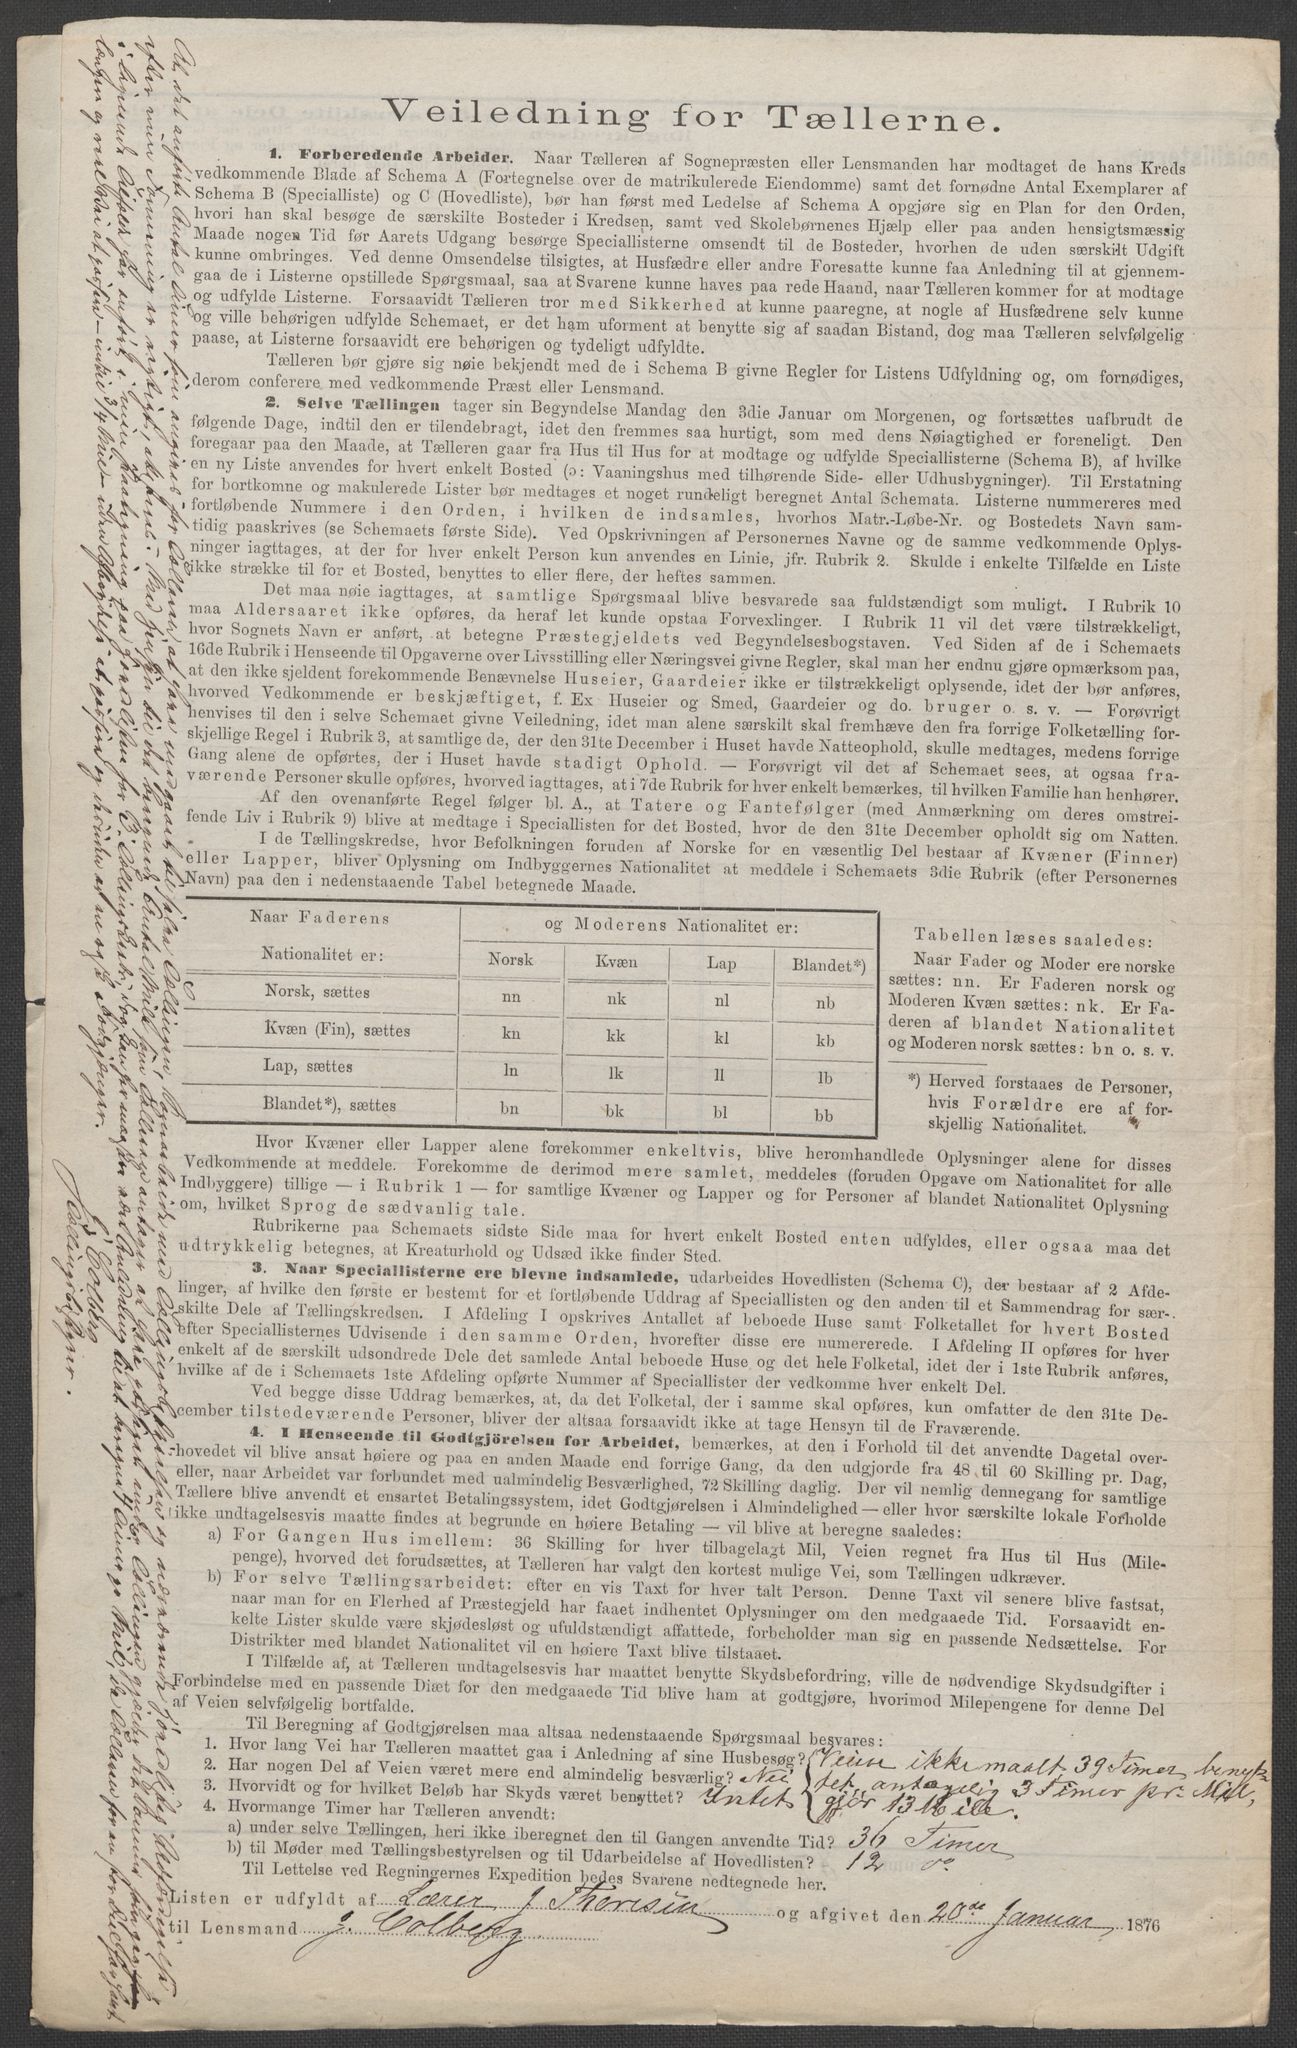 Veiledning for Tællerne.
1. Forberedende Arbeider. Naar Tælleren af Sognepræsten eller Lensmanden har modtaget de hans Kreds
vedkommende Blade af Schema A (Fortegnelse over de matrikulerede Eiendomme) samt det fornødne Antal Exemplarer af
Schema B (Specialliste) og C (Hovedliste), bør han først med Ledelse af Schema A opgjøre sig en Plan for den Orden,
hvori han skal besøge de særskilte Bosteder i Kredsen, samt ved Skolebørnenes Hjælp eller paa anden hensigtsmæssig
Maade nogen Tid før Aarets Udgang besørge Speciallisterne omsendt til de Bosteder, hvorhen de uden særskilt Udgift
kunne ombringes. Ved denne Omsendelse tilsigtes, at Husfædre eller andre Foresatte kunne faa Anledning til at gjennem-
gaa de i Listerne opstillede Spørgsmaal, saa at Svarene kunne haves paa rede Haand, naar Tælleren kommer for at modtage
og udfylde Listerne. Forsaavidt Tælleren tror med Sikkerhed at kunne paaregne, at nogle af Husfædrene selv kunne
og ville behørigen udfylde Schemaet, er det ham uforment at benytte sig af saadan Bistand, dog maa Tælleren selvfølgelig
paase, at Listerne forsaavidt ere behørigen og tydeligt udfyldte.
Tælleren bør gjøre sig nøie bekjendt med de i Schema B givne Regler for Listens Udfyldning og, om fornødiges,
derom conferere med vedkommende Præst eller Lensmand.
2. Selve Tællingen tager sin Begyndelse Mandag den 3die Januar om Morgenen, og fortsættes uafbrudt de
følgende Dage, indtil den er tilendebragt, idet den fremmes saa hurtigt, som med dens Nøiagtighed er foreneligt. Den
foregaar paa den Maade, at Tælleren gaar fra Hus til Hus for at modtage og udfylde Speciallisterne (Schema B), af hvilke
en ny Liste anvendes for hvert enkelt Bosted (ɔ: Vaaningshus med tilhørende Side- eller Udhusbygninger). Til Erstatning
for bortkomne og makulerede Lister bør medtages et noget rundeligt beregnet Antal Schemata. Listerne nummereres med
fortløbende Nummere i den Orden, i hvilken de indsamles, hvorhos Matr.-Løbe-Nr. og Bostedets Navn sam-
tidig paaskrives (se Schemaets første Side). Ved Opskrivningen af Personernes Navne og de samme vedkommende Oplys-
ninger iagttages, at der for hver enkelt Person kun anvendes en Linie, jfr. Rubrik 2. Skulde i enkelte Tilfælde en Liste
ikke strække til for et Bosted, benyttes to eller flere, der heftes sammen.
Det maa nøie iagttages, at samtlige Spørgsmaal blive besvarede saa fuldstændigt som muligt. I Rubrik 10
maa Aldersaaret ikke opføres, da heraf let kunde opstaa Forvexlinger. I Rubrik 11 vil det være tilstrækkeligt,
hvor Sognets Navn er anført, at betegne Præstegjeldets ved Begyndelsesbogstaven. Ved Siden af de i Schemaets
16de Rubrik i Henseende til Opgaverne over Livsstilling eller Næringsvei givne Regler, skal man her endnu gjøre opmærksom paa,
at den ikke sjeldent forekommende Benævnelse Huseier, Gaardeier ikke er tilstrækkeligt oplysende, idet der bør anføres,
hvorved Vedkommende er beskjæftiget, f. Ex Huseier og Smed, Gaardeier og do. bruger o. s. v. — Forøvrigt
henvises til den i selve Schemaet givne Veiledning, idet man alene særskilt skal fremhæve den fra forrige Folketælling for-
skjellige Regel i Rubrik 3, at samtlige de, der den 31te December i Huset havde Natteophold, skulle medtages, medens forrige
Gang alene de opførtes, der i Huset havde stadigt Ophold. — Forøvrigt vil det af Schemaet sees, at ogsaa fra-
værende Personer skulle opføres, hvorved iagttages, at i 7de Rubrik for hver enkelt bemærkes, til hvilken Familie han henhører.
Af den ovenanførte Regel følger bl. A., at Tatere og Fantefølger (med Anmærkning om deres omstrei-
fende Liv i Rubrik 9) blive at medtage i Speciallisten for det Bosted, hvor de den 31te December opholdt sig om Natten.
I de Tællingskredse, hvor Befolkningen foruden af Norske for en væsentlig Del bestaar af Kvæner (Finner)
eller Lapper, bliver Oplysning om Indbyggernes Nationalitet at meddele i Schemaets 3die Rubrik (efter Personernes
Navn) paa den i nedenstaaende Tabel betegnede Maade.
Naar Faderens
Nationalitet er:
og Moderens Nationalitet er:
Norsk Kvæn Lap Blandet*)
Norsk, sættes nn nk nl nb
Kvæn (Fin), sættes kn kk kl kb
Lap, sættes ln lk ll lb
Blandet*), sættes bn bk bl bb
Tabellen læses saaledes:
Naar Fader og Moder ere norske
sættes: nn. Er Faderen norsk og
Moderen Kvæn sættes: nk. Er Fa-
deren af blandet Nationalitet
og Moderen norsk sættes: bn o. s. v.
*) Herved forstaaes de Personer,
hvis Forældre ere af for-
skjellig Nationalitet.
Hvor Kvæner eller Lapper alene forekommer enkeltvis, blive heromhandlede Oplysninger alene for disses
Vedkommende at meddele. Forekomme de derimod mere samlet, meddeles (foruden Opgave om Nationalitet for alle
Indbyggere) tillige — i Rubrik 1 — for samtlige Kvæner og Lapper og for Personer af blandet Nationalitet Oplysning
om, hvilket Sprog de sædvanlig tale.
Rubrikerne paa Schemaets sidste Side maa for hvert enkelt Bosted enten udfyldes, eller ogsaa maa det
udtrykkelig betegnes, at Kreaturhold og Udsæd ikke finder Sted.
3. Naar Speciallisterne ere blevne indsamlede, udarbeides Hovedlisten (Schema C), der bestaar af 2 Afde-
linger, af hvilke den første er bestemt for et fortløbende Uddrag af Speciallisten og den anden til et Sammendrag for sær-
skilte Dele af Tællingskredsen. I Afdeling I opskrives Antallet af beboede Huse samt Folketallet for hvert Bosted
efter Speciallisternes Udvisende i den samme Orden, hvorefter disse ere numererede. I Afdeling II opføres for hver
enkelt af de særskilt udsondrede Dele det samlede Antal beboede Huse og det hele Folketal, idet der i 1ste Rubrik anføres,
hvilke af de i Schemaets 1ste Afdeling opførte Nummer af Speciallister der vedkomme hver enkelt Del.
Ved begge disse Uddrag bemærkes, at, da det Folketal, der i samme skal opføres, kun omfatter de den 31te De-
cember tilstedeværende Personer, bliver der altsaa forsaavidt ikke at tage Hensyn til de Fraværende.
4. I Henseende til Godtgjørelsen for Arbeidet, bemærkes, at den i Forhold til det anvendte Dagetal over-
hovedet vil blive ansat høiere og paa en anden Maade end forrige Gang, da den udgjorde fra 48 til 60 Skilling pr. Dag,
eller, naar Arbeidet var forbundet med ualmindelig Besværlighed, 72 Skilling daglig. Der vil nemlig dennegang for samtlige
Tællere blive anvendt et ensartet Betalingssystem, idet Godtgjørelsen i Almindelighed — eller hvor særskilte lokale Forholde
ikke undtagelsesvis maatte findes at begrunde en høiere Betaling — vil blive at beregne saaledes:
a) For Gangen Hus imellem: 36 Skilling for hver tilbagelagt Mil, Veien regnet fra Hus til Hus (Mile-
penge), hvorved det forudsættes, at Tælleren har valgt den kortest mulige Vei, som Tællingen udkræver.
b) For selve Tællingsarbeidet: efter en vis Taxt for hver talt Person. Denne Taxt vil senere blive fastsat,
naar man for en Flerhed af Præstegjeld har faaet indhentet Oplysninger om den medgaaede Tid. Forsaavidt en-
kelte Lister skulde være skjødesløst og ufuldstændigt affattede, forbeholder man sig en passende Nedsættelse. For
Distrikter med blandet Nationalitet vil en høiere Taxt blive tilstaaet.
I Tilfælde af, at Tælleren undtagelsesvis har maattet benytte Skydsbefordring, ville de nødvendige Skydsudgifter i
Forbindelse med en passende Diæt for den medgaaede Tid blive ham at godtgjøre, hvorimod Milepengene for denne Del
af Veien selvfølgelig bortfalde.
Til Beregning af Godtgjørelsen maa altsaa nedenstaaende Spørgsmaal besvares:
1. Hvor lang Vei har Tælleren maattet gaa i Anledning af sine Husbesøg? Veien ikke maalt, 39 Timer benyt-
tet, antagelig 3 Timer pr. Mil,
gjør 13 Mile.
2. Har nogen Del af Veien været mere end almindelig besværlig? Nei
3. Hvorvidt og for hvilket Beløb har Skyds været benyttet? Intet
4. Hvormange Timer har Tælleren anvendt:
a) under selve Tællingen, heri ikke iberegnet den til Gangen anvendte Tid? 36 Timer
b) til Møder med Tællingsbestyrelsen og til Udarbeidelse af Hovedlisten? 12 do
Til Lettelse ved Regningernes Expedition bedes Svarene nedtegnede her.
Listen er udfyldt af Lærer J Thoresen og afgivet den 20de Januar 1876
til Lensmand J. Colberg
J. Colberg
Tællingsbestyrer.